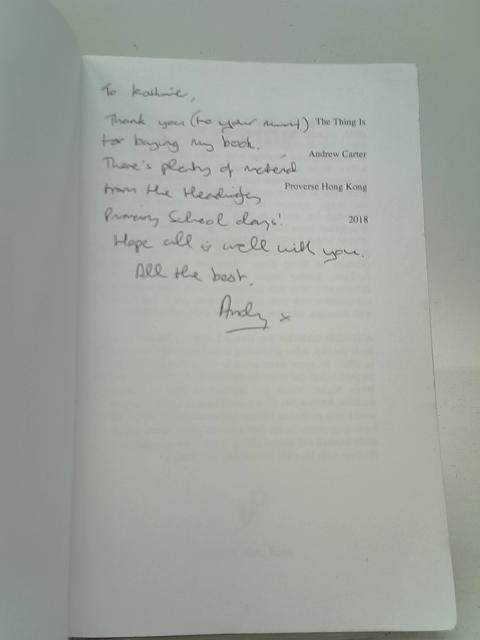 To Kathrie,
Thank you (to your mum!)
for buying my book.
There's plenty of material
from the Headingley
Primary School days!
Hope all is well with you.
All the best,
Andy x
The Thing Is
Andrew Carter
Proverse Hong Kong
2018